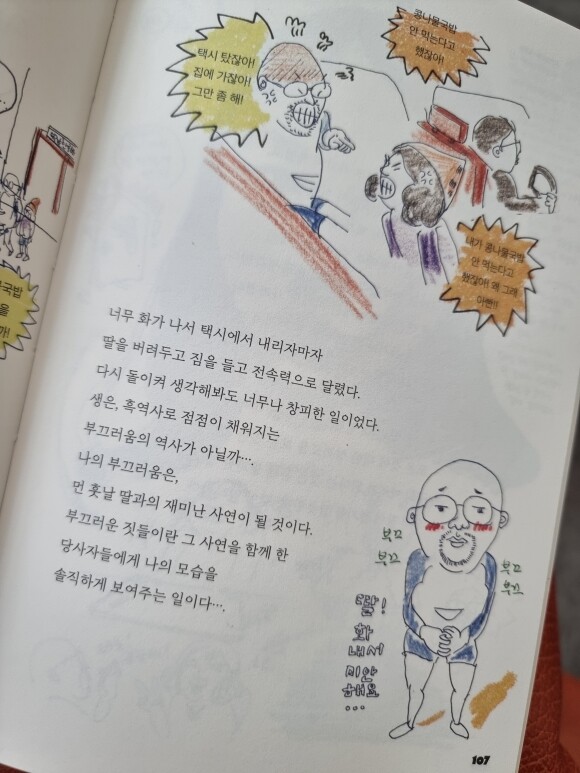 택시 탔잖아!
집에 가잖아!
그만 좀 해!
콩나물국밥
안 먹는다고
했잖아!
내가 콩나물국밥
안 먹는다고
했잖아! 왜 그래
아빠!!
국밥
을
까!
너무 화가 나서 택시에서 내리자마자
딸을 버려두고 짐을 들고 전속력으로 달렸다.
다시 돌이켜 생각해봐도 너무나 창피한 일이었다.
생은, 흑역사로 점점이 채워지는
부끄러움의 역사가 아닐까….
나의 부끄러움은,
먼 훗날 딸과의 재미난 사연이 될 것이다.
부끄러운 짓들이란 그 사연을 함께 한
당사자들에게 나의 모습을
솔직하게 보여주는 일이다….
부끄
부끄
부끄
부끄
딸!
화
내서
미안
해요
...
107